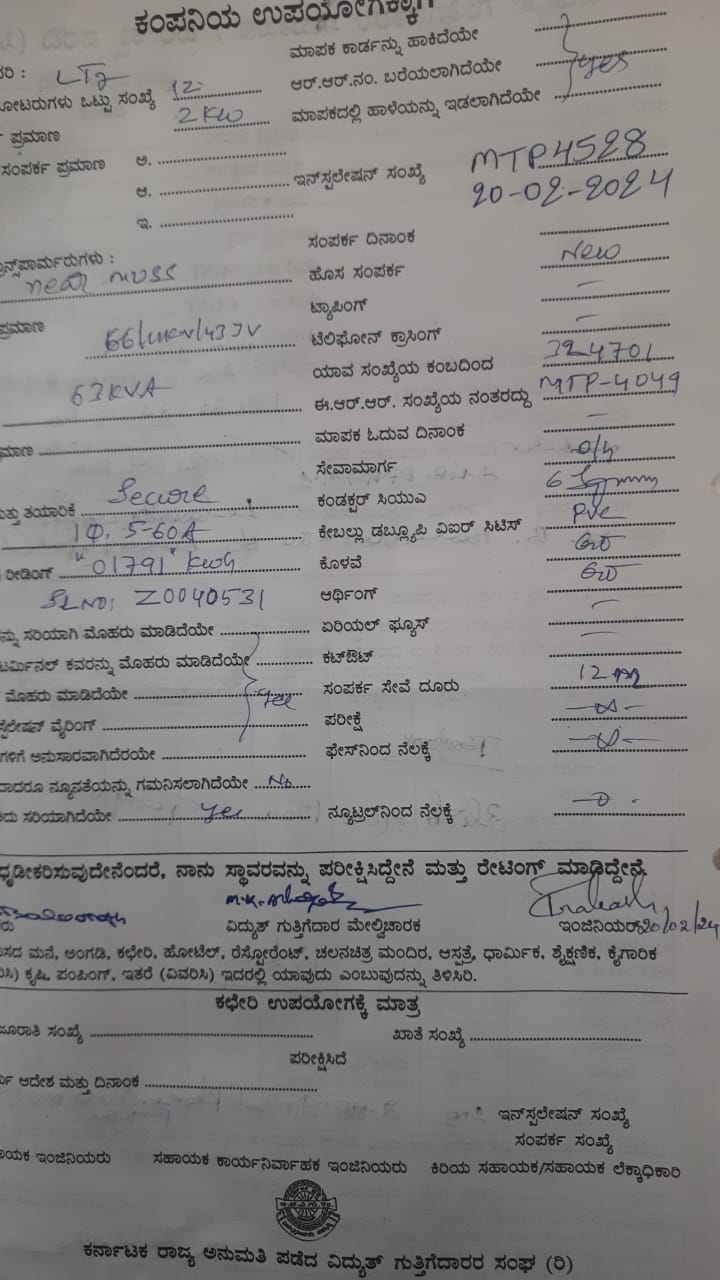 ಕಂಪನಿಯ ಉಪಯೋಗಕ್ಕಾಗಿ
ಮಾಪಕ ಕಾರ್ಡನ್ನು ಹಾಕಿದೆಯೇ
LT2
ಒಟ್ಟು ಸಂಖ್ಯೆ 12 ಆರ್.ಆರ್.ನಂ. ಬರೆಯಲಾಗಿದೆಯೇ yes
2 KW ಮಾಪಕದಲ್ಲಿ ಹಾಳೆಯನ್ನು ಇಡಲಾಗಿದೆಯೇ
ಪ್ರಮಾಣ
ಸಂಪರ್ಕ ಪ್ರಮಾಣ ಅ.
ಆ. ಇನ್‌ಸ್ಟಲೇಷನ್ ಸಂಖ್ಯೆ MTP4528
20-02-2024
ಇ.
ಸಂಪರ್ಕ ದಿನಾಂಕ
near MUSS ಹೊಸ ಸಂಪರ್ಕ New
ಟ್ಯಾಪಿಂಗ್ –
ಪ್ರಮಾಣ ಟೆಲಿಫೋನ್ ಕ್ರಾಸಿಂಗ್ –
ಯಾವ ಸಂಖ್ಯೆಯ ಕಂಬದಿಂದ 324701
63KVA ಈ.ಆರ್.ಆರ್. ಸಂಖ್ಯೆಯ ನಂತರದ್ದು MTP-4049
ಮಾಪಕ ಓದುವ ದಿನಾಂಕ –
ಸೇವಾಮಾರ್ಗ o/h
ತಯಾರಿಕೆ Secure ಕಂಡಕ್ಟರ್ ಸಿಯುವಿ 6 Sqmm
1Φ. 5-60A ಕೇಬಲ್ಲು ಡಬ್ಲ್ಯೂಪಿ ವಿಐರ್ ಸಿಟಿಸ್ PVC
ರೀಡಿಂಗ್ "01791" Kwh ಕೊಳವೆ
SLNO: Z0040531 ಆರ್ಥಿಂಗ್
ಸರಿಯಾಗಿ ಮೊಹರು ಮಾಡಿದೆಯೇ ಏರಿಯಲ್ ಫ್ಯೂಸ್ –
ಟರ್ಮಿನಲ್ ಕವರನ್ನು ಮೊಹರು ಮಾಡಿದೆಯೇ ಕಟ್‌ಔಟ್ –
ಮೊಹರು ಮಾಡಿದೆಯೇ yes ಸಂಪರ್ಕ ಸೇವೆ ದೂರು
ವೈರಿಂಗ್ ಪರೀಕ್ಷೆ
ಅನುಸಾರವಾಗಿದೆರಯೇ ಫೇಸ್‌ನಿಂದ ನೆಲಕ್ಕೆ
ನ್ಯೂನತೆಯನ್ನು ಗಮನಿಸಲಾಗಿದೆಯೇ No
ಸರಿಯಾಗಿದೆಯೇ Yes ನ್ಯೂಟ್ರಲ್‌ನಿಂದ ನೆಲಕ್ಕೆ
ಧೃಡೀಕರಿಸುವುದೇನೆಂದರೆ, ನಾನು ಸ್ಥಾವರವನ್ನು ಪರೀಕ್ಷಿಸಿದ್ದೇನೆ ಮತ್ತು ರೇಟಿಂಗ್ ಮಾಡಿದ್ದೇನೆ.
ವಿದ್ಯುತ್ ಗುತ್ತಿಗೆದಾರ ಮೇಲ್ವಿಚಾರಕ ಇಂಜಿನಿಯರ್ 20/02/24
ಮನೆ, ಅಂಗಡಿ, ಕಛೇರಿ, ಹೋಟೆಲ್, ರೆಸ್ಟೋರೆಂಟ್, ಚಲನಚಿತ್ರ ಮಂದಿರ, ಆಸ್ಪತ್ರೆ, ಧಾರ್ಮಿಕ, ಶೈಕ್ಷಣಿಕ, ಕೈಗಾರಿಕೆ
ಕೃಷಿ, ಪಂಪಿಂಗ್, ಇತರೆ (ವಿವರಿಸಿ) ಇದರಲ್ಲಿ ಯಾವುದು ಎಂಬುವುದನ್ನು ತಿಳಿಸಿರಿ.
ಕಛೇರಿ ಉಪಯೋಗಕ್ಕೆ ಮಾತ್ರ
ಸಂಖ್ಯೆ ಖಾತೆ ಸಂಖ್ಯೆ
ಪರೀಕ್ಷಿಸಿದೆ
ಆದೇಶ ಮತ್ತು ದಿನಾಂಕ
ಇನ್‌ಸ್ಪಲೇಷನ್ ಸಂಖ್ಯೆ
ಸಂಪರ್ಕ ಸಂಖ್ಯೆ
ಇಂಜಿನಿಯರು ಸಹಾಯಕ ಕಾರ್ಯನಿರ್ವಾಹಕ ಇಂಜಿನಿಯರು ಕಿರಿಯ ಸಹಾಯಕ/ಸಹಾಯಕ ಲೆಕ್ಕಾಧಿಕಾರಿ
ಕರ್ನಾಟಕ ರಾಜ್ಯ ಅನುಮತಿ ಪಡೆದ ವಿದ್ಯುತ್ ಗುತ್ತಿಗೆದಾರರ ಸಂಘ (ರಿ)